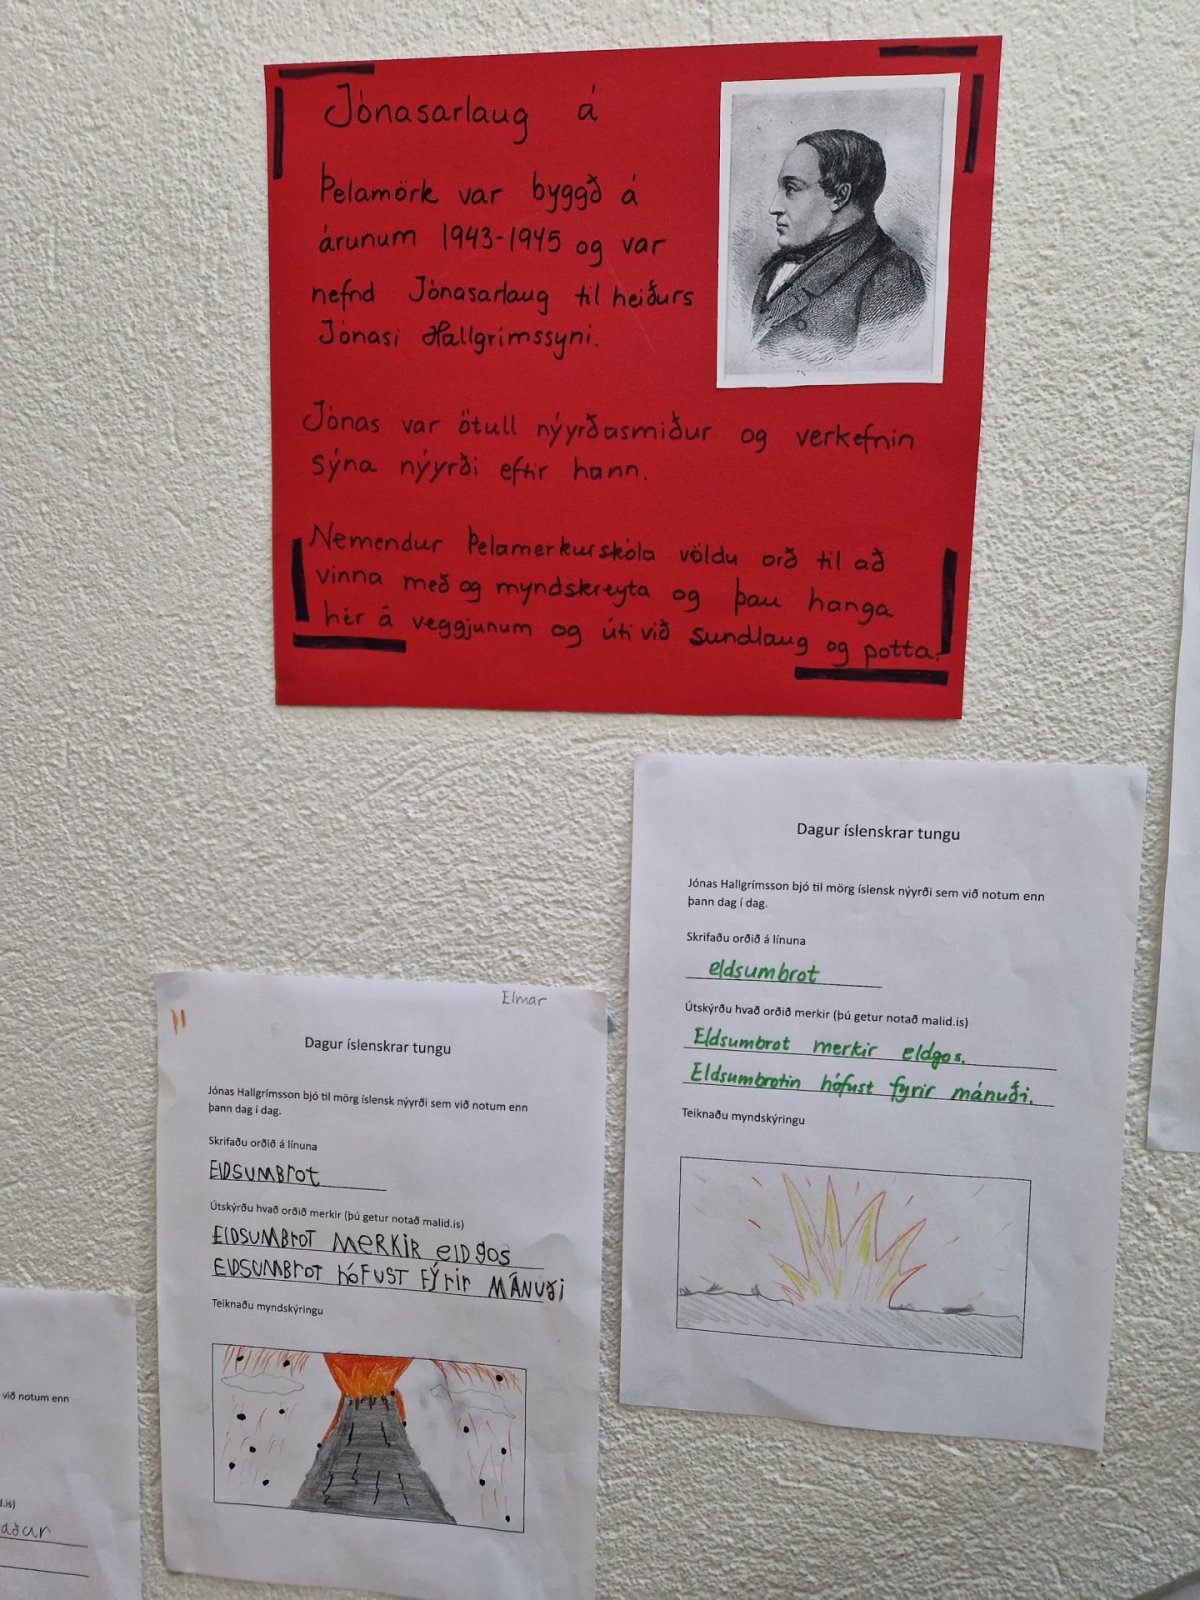 Jónasarlaug á
Þelamörk var byggð á
árunum 1943-1945 og var
nefnd Jónasarlaug til heiðurs
Jónasi Hallgrímssyni.
Jónas var ötull nýyrðasmiður og verkefnin
sýna nýyrði eftir hann.
Nemendur Þelamerkurskóla völdu orð til að
vinna með og myndskreyta og þau hanga
hér á veggjunum og úti við sundlaug og potta.
Dagur íslenskrar tungu
Jónas Hallgrímsson bjó til mörg íslensk nýyrði sem við notum enn
þann dag í dag.
Skrifaðu orðið á línuna
eldsumbrot
Útskýrðu hvað orðið merkir (þú getur notað malid.is)
Eldsumbrot merkir eldgos.
Eldsumbrotin hófust fyrir mánuði.
Teiknaðu myndskýringu
Elmar
Dagur íslenskrar tungu
Jónas Hallgrímsson bjó til mörg íslensk nýyrði sem við notum enn
þann dag í dag.
Skrifaðu orðið á línuna
ElDSUMBrOT
Útskýrðu hvað orðið merkir (þú getur notað malid.is)
ElDSUMBrOT MERKIR elDgos
ElDSUMBrOT hÓFUST FÝrir MÁNUði
Teiknaðu myndskýringu
við notum enn
d.is)